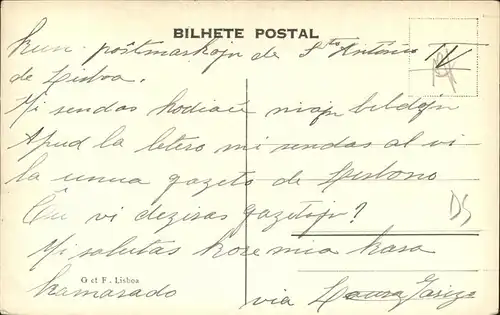 BILHETE POSTAL
kun poŝtmarkojn de Sto António
de Lisboa.
Mi sendas hodiaŭ miajn bildojn
Apud la letero mi sendas al vi
la unua gazeto de Lisbono
Ĉu vi deziras gazetojn?
Mi salutas kore mia kara
G et F. Lisboa
kamarado via
DS